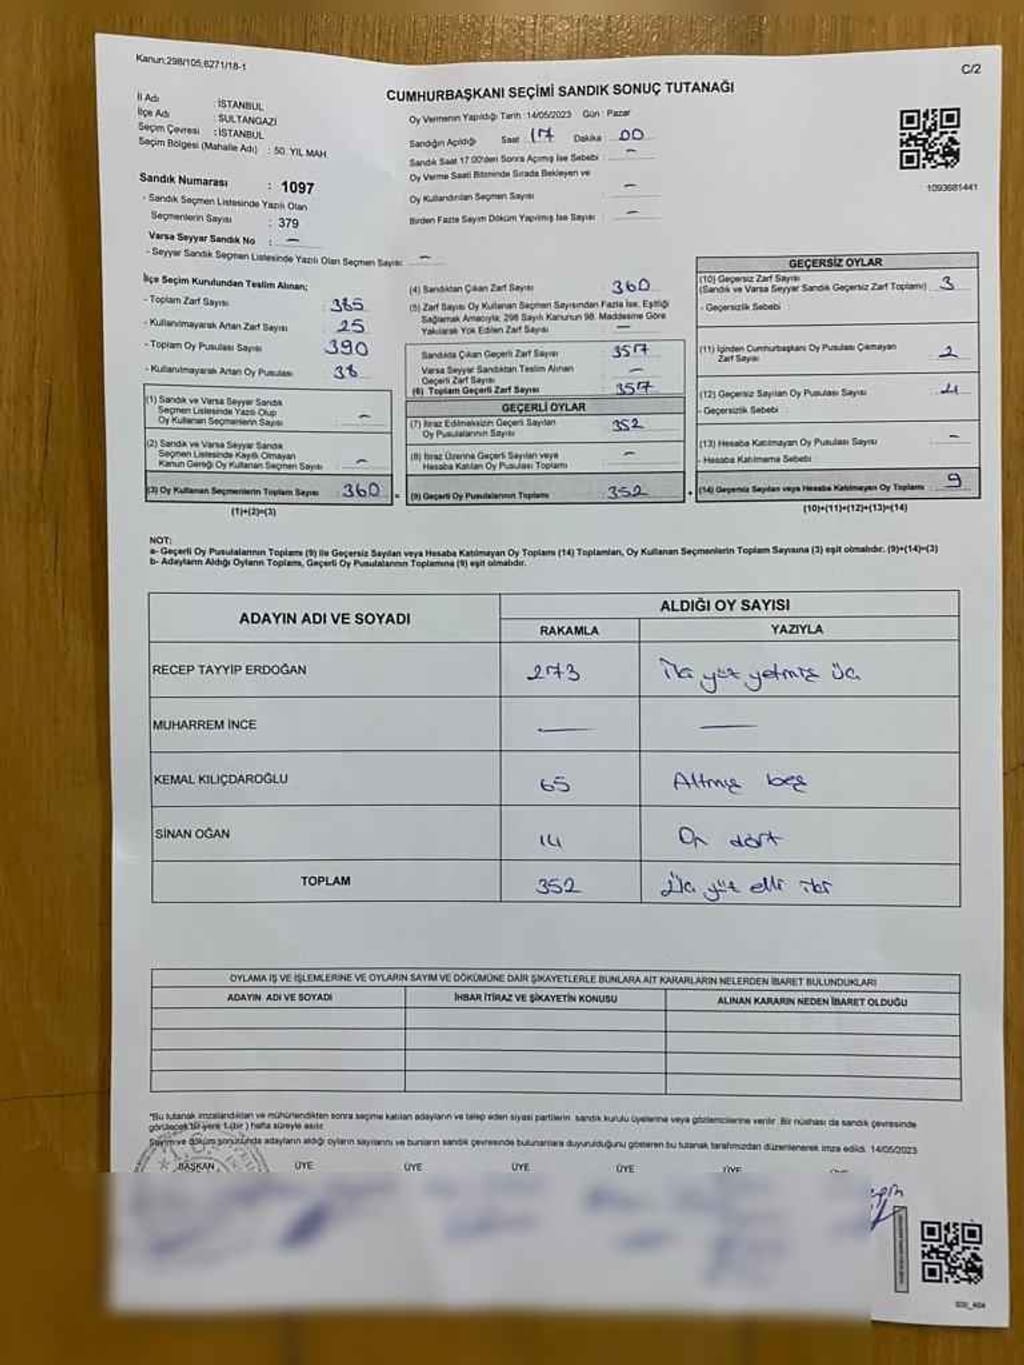 Kanun:298/105,6271/18-1
C/2
CUMHURBAŞKANI SEÇİMİ SANDIK SONUÇ TUTANAĞI
İl Adı : İSTANBUL
İlçe Adı : SULTANGAZİ
Seçim Çevresi : İSTANBUL
Seçim Bölgesi (Mahalle Adı) : 50. YIL MAH.
Oy Vermenin Yapıldığı Tarih :14/05/2023 Gün : Pazar
Sandığın Açıldığı Saat 17 Dakika 00
Sandık Saat 17.00'den Sonra Açılmış İse Sebebi : —
Oy Verme Saati Bitiminde Sırada Bekleyen ve
Oy Kullandırılan Seçmen Sayısı : —
Birden Fazla Sayım Döküm Yapılmış İse Sayısı : —
1093681441
Sandık Numarası : 1097
- Sandık Seçmen Listesinde Yazılı Olan
Seçmenlerin Sayısı : 379
Varsa Seyyar Sandık No : —
- Seyyar Sandık Seçmen Listesinde Yazılı Olan Seçmen Sayısı: —
İlçe Seçim Kurulundan Teslim Alınan:
- Toplam Zarf Sayısı 385
- Kullanılmayarak Artan Zarf Sayısı 25
- Toplam Oy Pusulası Sayısı 390
- Kullanılmayarak Artan Oy Pusulası 38
(1) Sandık ve Varsa Seyyar Sandık
Seçmen Listesinde Yazılı Olup
Oy Kullanan Seçmenlerin Sayısı —
(2) Sandık ve Varsa Seyyar Sandık
Seçmen Listesinde Kayıtlı Olmayan
Kanun Gereği Oy Kullanan Seçmen Sayısı —
(3) Oy Kullanan Seçmenlerin Toplam Sayısı 360
(1)+(2)=(3)
(4) Sandıktan Çıkan Zarf Sayısı 360
(5) Zarf Sayısı Oy Kullanan Seçmen Sayısından Fazla İse, Eşitliği
Sağlamak Amacıyla, 298 Sayılı Kanunun 98. Maddesine Göre
Yakılarak Yok Edilen Zarf Sayısı —
Sandıkta Çıkan Geçerli Zarf Sayısı 357
Varsa Seyyar Sandıktan Teslim Alınan
Geçerli Zarf Sayısı —
(6) Toplam Geçerli Zarf Sayısı 357
GEÇERLİ OYLAR
(7) İtiraz Edilmeksizin Geçerli Sayılan
Oy Pusulalarının Sayısı 352
(8) İtiraz Üzerine Geçerli Sayılan veya
Hesaba Katılan Oy Pusulası Toplamı —
(9) Geçerli Oy Pusulalarının Toplamı 352
GEÇERSİZ OYLAR
(10) Geçersiz Zarf Sayısı
(Sandık ve Varsa Seyyar Sandık Geçersiz Zarf Toplamı) 3
- Geçersizlik Sebebi :
(11) İçinden Cumhurbaşkanı Oy Pusulası Çıkmayan
Zarf Sayısı 2
(12) Geçersiz Sayılan Oy Pusulası Sayısı 4
- Geçersizlik Sebebi :
(13) Hesaba Katılmayan Oy Pusulası Sayısı —
- Hesaba Katılmama Sebebi :
(14) Geçersiz Sayılan veya Hesaba Katılmayan Oy Toplamı 9
(10)+(11)+(12)+(13)=(14)
NOT:
a- Geçerli Oy Pusulalarının Toplamı (9) ile Geçersiz Sayılan veya Hesaba Katılmayan Oy Toplamı (14) Toplamları, Oy Kullanan Seçmenlerin Toplam Sayısına (3) eşit olmalıdır. (9)+(14)=(3)
b- Adayların Aldığı Oyların Toplamı, Geçerli Oy Pusulalarının Toplamına (9) eşit olmalıdır.
ADAYIN ADI VE SOYADI
ALDIĞI OY SAYISI
RAKAMLA YAZIYLA
RECEP TAYYİP ERDOĞAN 273 İki yüz yetmiş üç
MUHARREM İNCE — —
KEMAL KILIÇDAROĞLU 65 Altmış beş
SİNAN OĞAN 14 On dört
TOPLAM 352 Üç yüz elli iki
OYLAMA İŞ VE İŞLEMLERİNE VE OYLARIN SAYIM VE DÖKÜMÜNE DAİR ŞİKAYETLERLE BUNLARA AİT KARARLARIN NELERDEN İBARET BULUNDUKLARI
ADAYIN ADI VE SOYADI İHBAR İTİRAZ VE ŞİKAYETİN KONUSU ALINAN KARARIN NEDEN İBARET OLDUĞU
*Bu tutanak imzalandıktan ve mühürlendikten sonra seçime katılan adayların ve talep eden siyasi partilerin sandık kurulu üyelerine veya gözlemcilerine verilir. Bir nüshası da sandık çevresinde
görülecek bir yere 1 (bir) hafta süreyle asılır.
Sayım ve döküm sonucunda adayların aldığı oyların sayılarını ve bunların sandık çevresinde bulunanlara duyurulduğunu gösteren bu tutanak tarafımızdan düzenlenerek imza edildi. 14/05/2023
BAŞKAN ÜYE ÜYE ÜYE ÜYE ÜYE